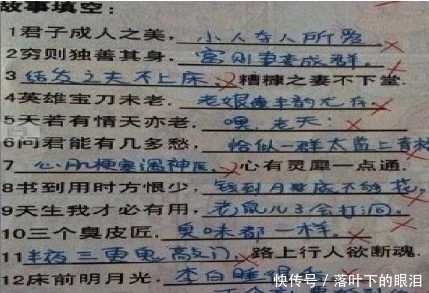 故事填空：
1君子成人之美，小人夺人所爱
2穷则独善其身，富则妻妾成群。
3结发之夫不上床，糟糠之妻不下堂.
4英雄宝刀未老，老娘风韵尤存.
5天若有情天亦老，嘿老天：
6问君能有几多愁，恰似一群太监上青楼
7心肌梗塞遇神医，心有灵犀一点通.
8书到用时方恨少，钱到月底不够花，
9天生我才必有用，老鼠儿子会打洞.
10三个臭皮匠，臭味都一样。
11半夜三更鬼敲门，路上行人欲断魂.
12床前明月光，李白睡得
快传号 / 落叶下的眼泪